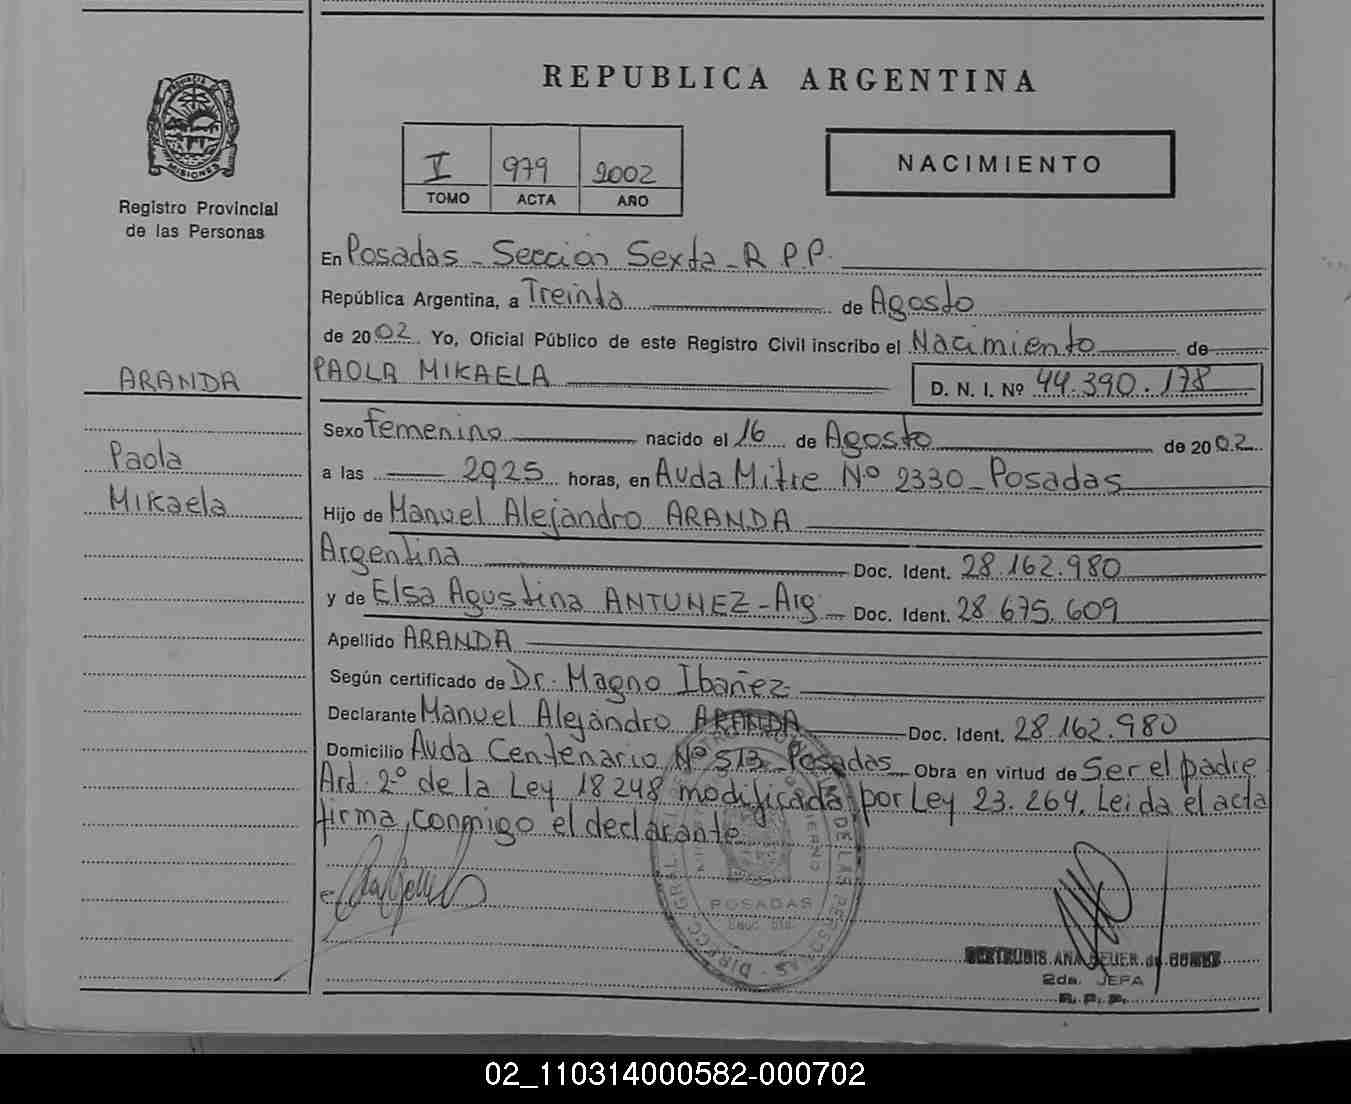 REPUBLICA ARGENTINA
PROVINCIA DE MISIONES
Registro Provincial
de las Personas
I 979 2002
TOMO ACTA AÑO
NACIMIENTO
En Posadas - Sección Sexta - R.P.P.
República Argentina, a Treinta de Agosto
de 2002 Yo, Oficial Público de este Registro Civil inscribo el Nacimiento de
PAOLA MIKAELA D. N. I. Nº 44.390.178
ARANDA
Paola
Mikaela
Sexo Femenino nacido el 16 de Agosto de 2002
a las 2925 horas, en Avda Mitre Nº 2330 - Posadas
Hijo de Manuel Alejandro ARANDA
Argentina Doc. Ident. 28.162.980
y de Elsa Agustina ANTUNEZ - Arg. Doc. Ident. 28.675.609
Apellido ARANDA
Según certificado de Dr. Magno Ibañez
Declarante Manuel Alejandro ARANDA Doc. Ident. 28.162.980
Domicilio Avda Centenario Nº 513 - Posadas Obra en virtud de Ser el padre
Art. 2º de la Ley 18248 modificada por Ley 23.264. Leida el acta
firma, conmigo el declarante
POSADAS
GERTRUDIS ANA BEUER de
2da. JEFA
R. P. P.
02_110314000582-000702